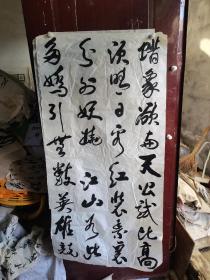 蜡象欲与天公試比高
須晴日看红装素裹
分外妖娆江山如此
多嬌引無數英雄競